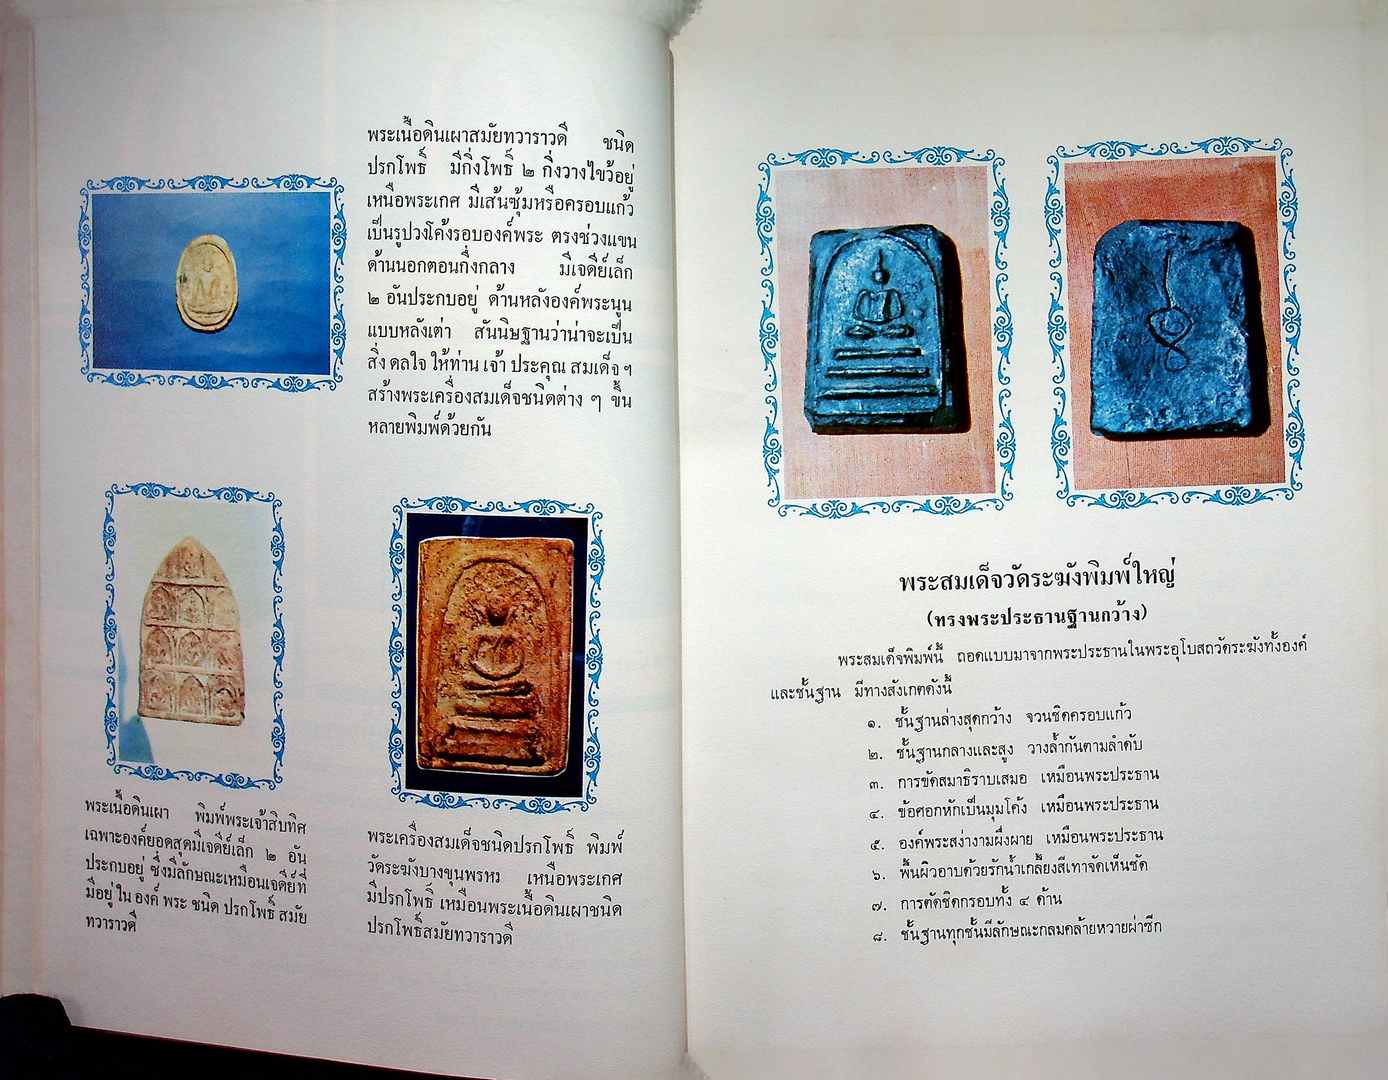 พระเนื้อดินเผาสมัยทวาราวดี ชนิด
ปรกโพธิ์ มีกิ่งโพธิ์ ๒ กิ่งวางไขว้อยู่
เหนือพระเกศ มีเส้นซุ้มหรือครอบแก้ว
เป็นรูปวงโค้งรอบองค์พระ ตรงช่วงแขน
ด้านนอกตอนกึ่งกลาง มีเจดีย์เล็ก
๒ อันประกบอยู่ ด้านหลังองค์พระนูน
แบบหลังเต่า สันนิษฐานว่าน่าจะเป็น
สิ่ง ดลใจ ให้ท่าน เจ้า ประคุณ สมเด็จ ฯ
สร้างพระเครื่องสมเด็จชนิดต่าง ๆ ขึ้น
หลายพิมพ์ด้วยกัน
พระเนื้อดินเผา พิมพ์พระเจ้าสิบทิศ
เฉพาะองค์ยอดสุดมีเจดีย์เล็ก ๒ อัน
ประกบอยู่ ซึ่งมีลักษณะเหมือนเจดีย์ที่
มีอยู่ ใน องค์ พระ ชนิด ปรกโพธิ์ สมัย
ทวาราวดี
พระเครื่องสมเด็จชนิดปรกโพธิ์ พิมพ์
วัดระฆังบางขุนพรหม เหนือพระเกศ
มีปรกโพธิ์ เหมือนพระเนื้อดินเผาชนิด
ปรกโพธิ์สมัยทวาราวดี
พระสมเด็จวัดระฆังพิมพ์ใหญ่
(ทรงพระประธานฐานกว้าง)
พระสมเด็จพิมพ์นี้ ถอดแบบมาจากพระประธานในพระอุโบสถวัดระฆังทั้งองค์
และชั้นฐาน มีทางสังเกตดังนี้
๑. ชั้นฐานล่างสุดกว้าง จวนชิดครอบแก้ว
๒. ชั้นฐานกลางและสูง วางล้ำกันตามลำดับ
๓. การขัดสมาธิราบเสมอ เหมือนพระประธาน
๔. ข้อศอกหักเป็นมุมโค้ง เหมือนพระประธาน
๕. องค์พระสง่างามผึ่งผาย เหมือนพระประธาน
๖. พื้นผิวอาบด้วยรักน้ำเกลี้ยงสีเทาจัดเห็นชัด
๗. การตัดชิดกรอบทั้ง ๔ ด้าน
๘. ชั้นฐานทุกชั้นมีลักษณะกลมคล้ายหวายผ่าซีก